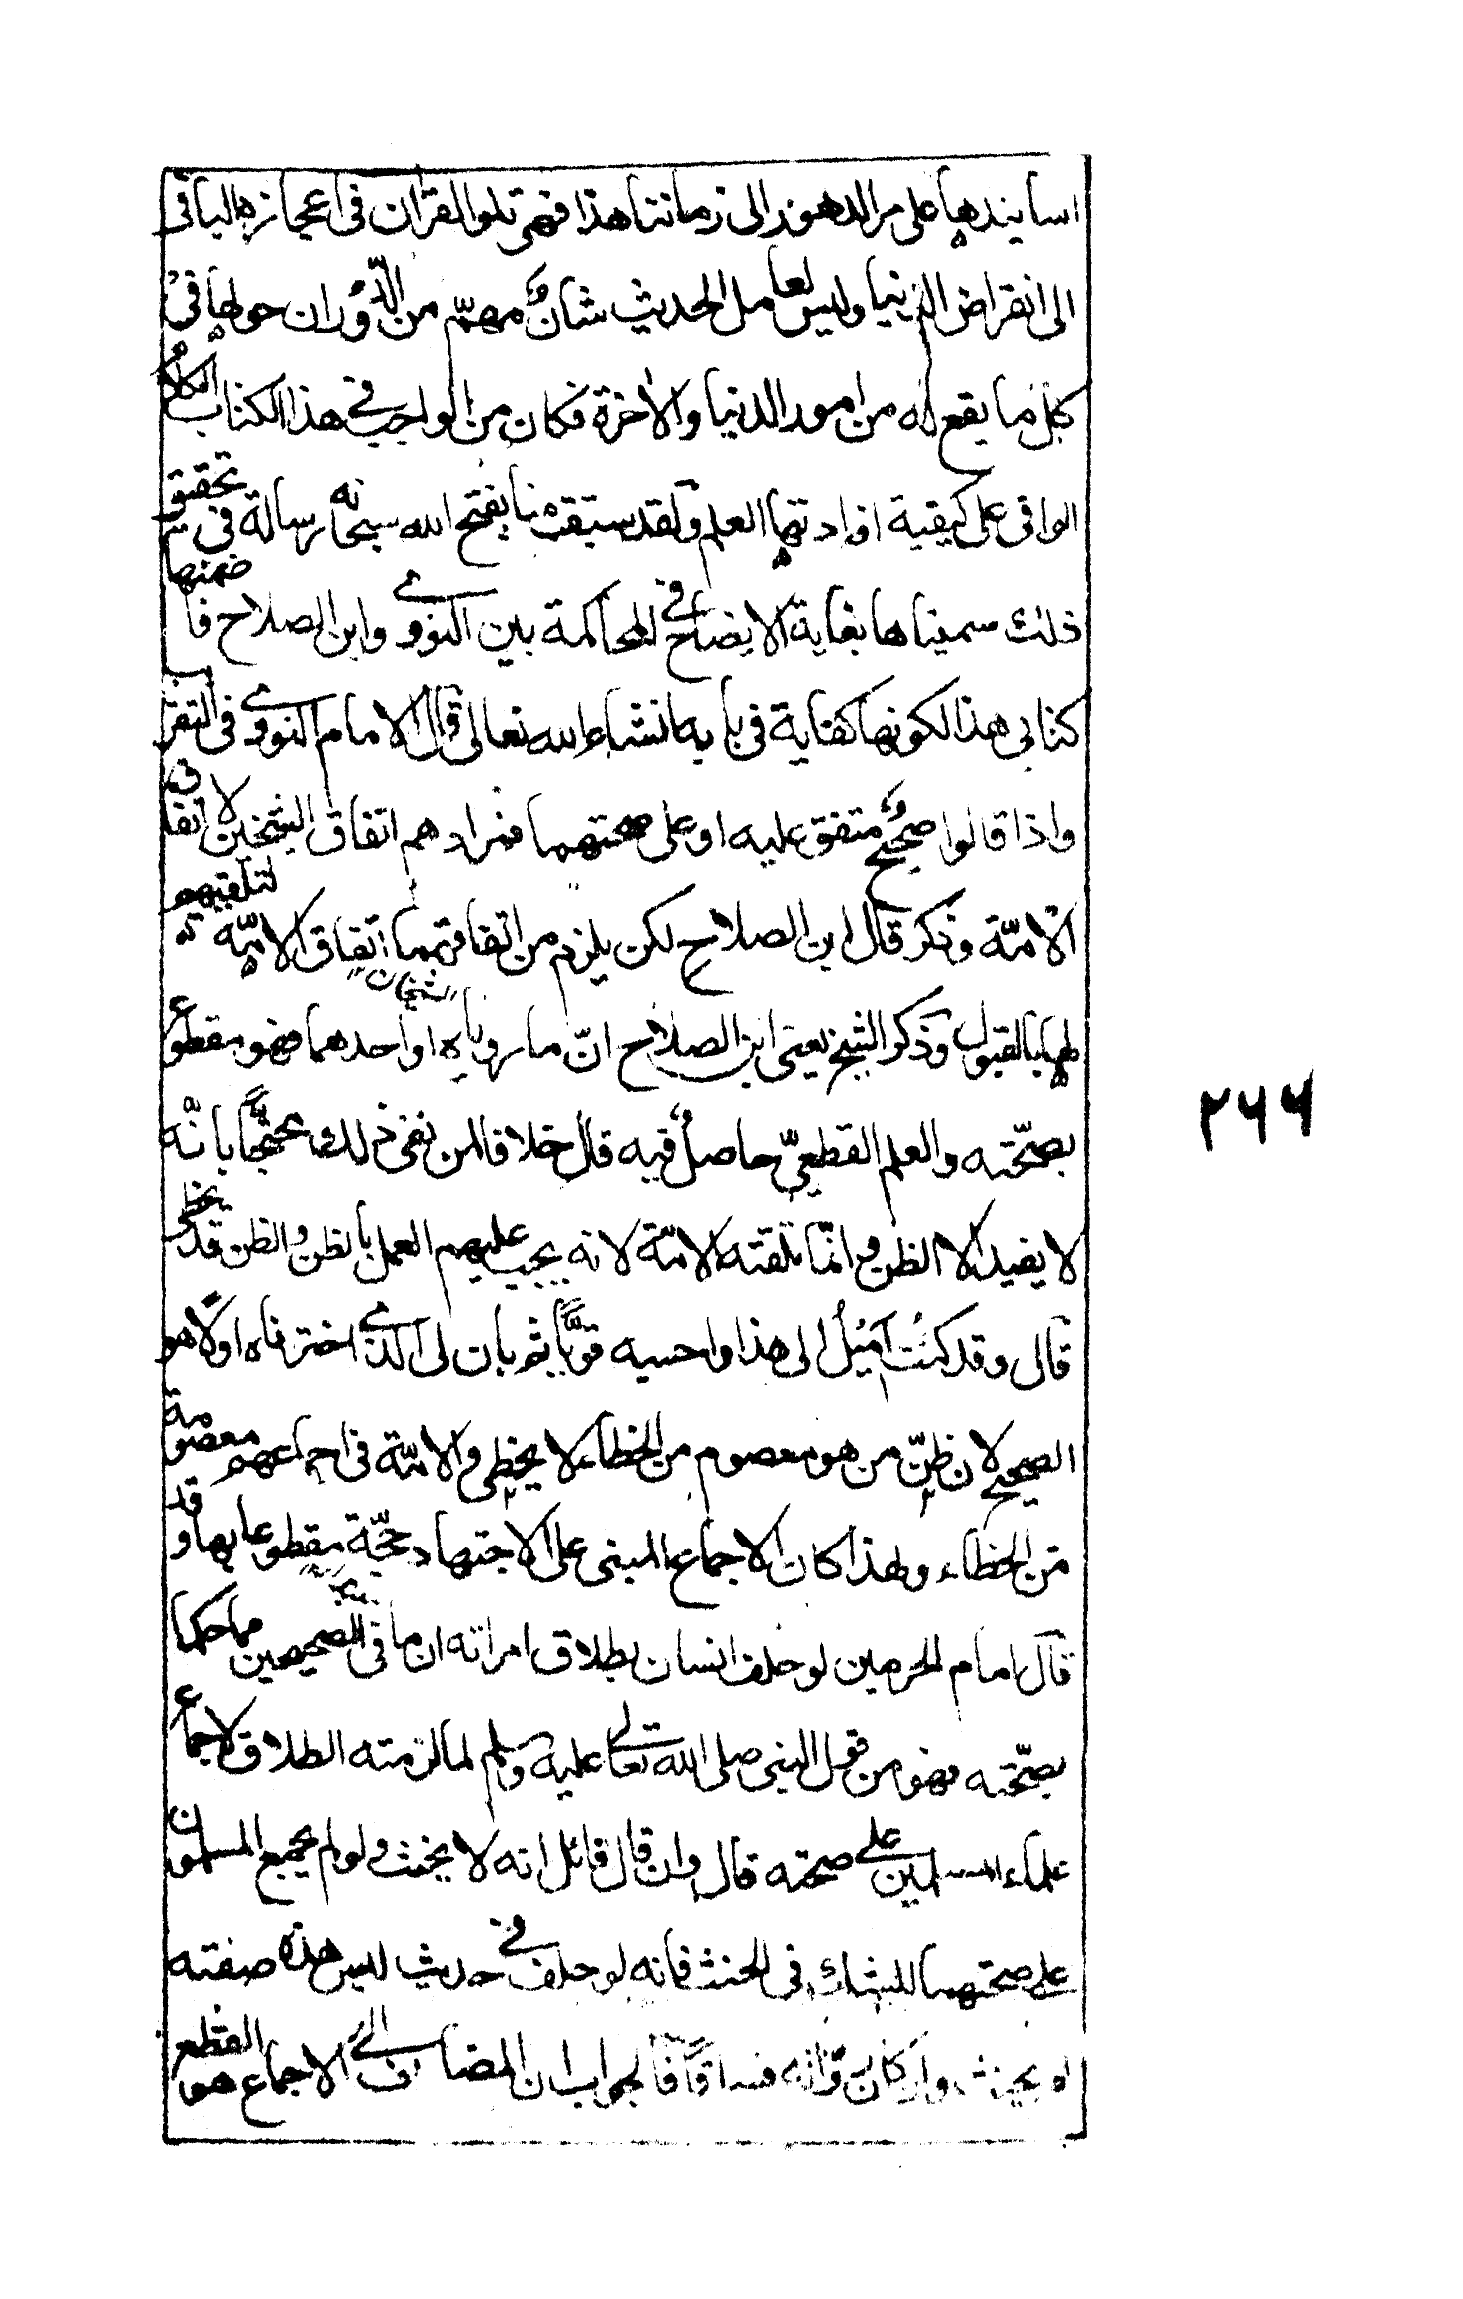 اسانيدها على مر الدهور الى زماننا هذا فهى تلو القرآن فى اعجازها الباقى
الى انقراض الدنيا وليس لعامل الحديث شأن مهمّ من الدّوران حولها فى
كل ما يقع له من امور الدنيا والآخرة فكان من الواجب فى هذا الكتاب الكلام
الوافى على كيفية افادتها العلم ولقد سبقت منا بفتح الله سبحانه رسالة فى تحقيق
ذلك سميناها بغاية الايضاح فى المحاكمة بين النووى وابن الصلاح فا ضمنها
كتابى هذا لكونها كفاية فى بابه انشاء الله تعالى قال الامام النووى فى التقريب
واذا قالوا صحيح متفق عليه او على صحتهما فمرادهم اتفاق الشيخين لا اتفاق
الامّة وذكر قال ابن الصلاح لكن يلزم من اتفاقهما اتفاق الامّة لتلقيهم
لهما بالقبول وذكر الشيخ يعنى ابن الصلاح انّ ما روياه الشيخان او احدهما فهو مقطوع
بصحّته والعلم القطعىّ حاصل فيه قال خلافا لمن نفى ذلك محتجّا بانّه
لا يفيد الا الظن وانّما تلقته الامّة لانه يجب عليهم العمل بالظن والظن قد يخطى
قال وقد كنت اميل الى هذا واحسبه قويّا ثم بان لى ان الذى اخترناه اوّلا هو
الصحيح لان ظنّ من هو معصوم من الخطاء لا يخطى والامّة فى اجماعهم معصومة
من الخطاء ولهذا كان الاجماع المبنى على الاجتهاد حجّة مقطوعا بها وقد
قال امام الحرمين لو حلف انسان بطلاق امراته ان ما فى الصحيحين مما حكما
بصحّته فهو من قول النبى صلى الله تعالى عليه وسلم لما لزمته الطلاق لاجماع
علماء المسلمين على صحته قال وان قال قائل انه لا يحنث ولو لم يجمع المسلمون
على صحتهما للشك فى الحنث فانه لو حلف فى حديث ليس هذه صفته
لم يحنث وان كان رواته فساقا فالجواب ان المضاف الى الاجماع هو القطع
٢٦٦